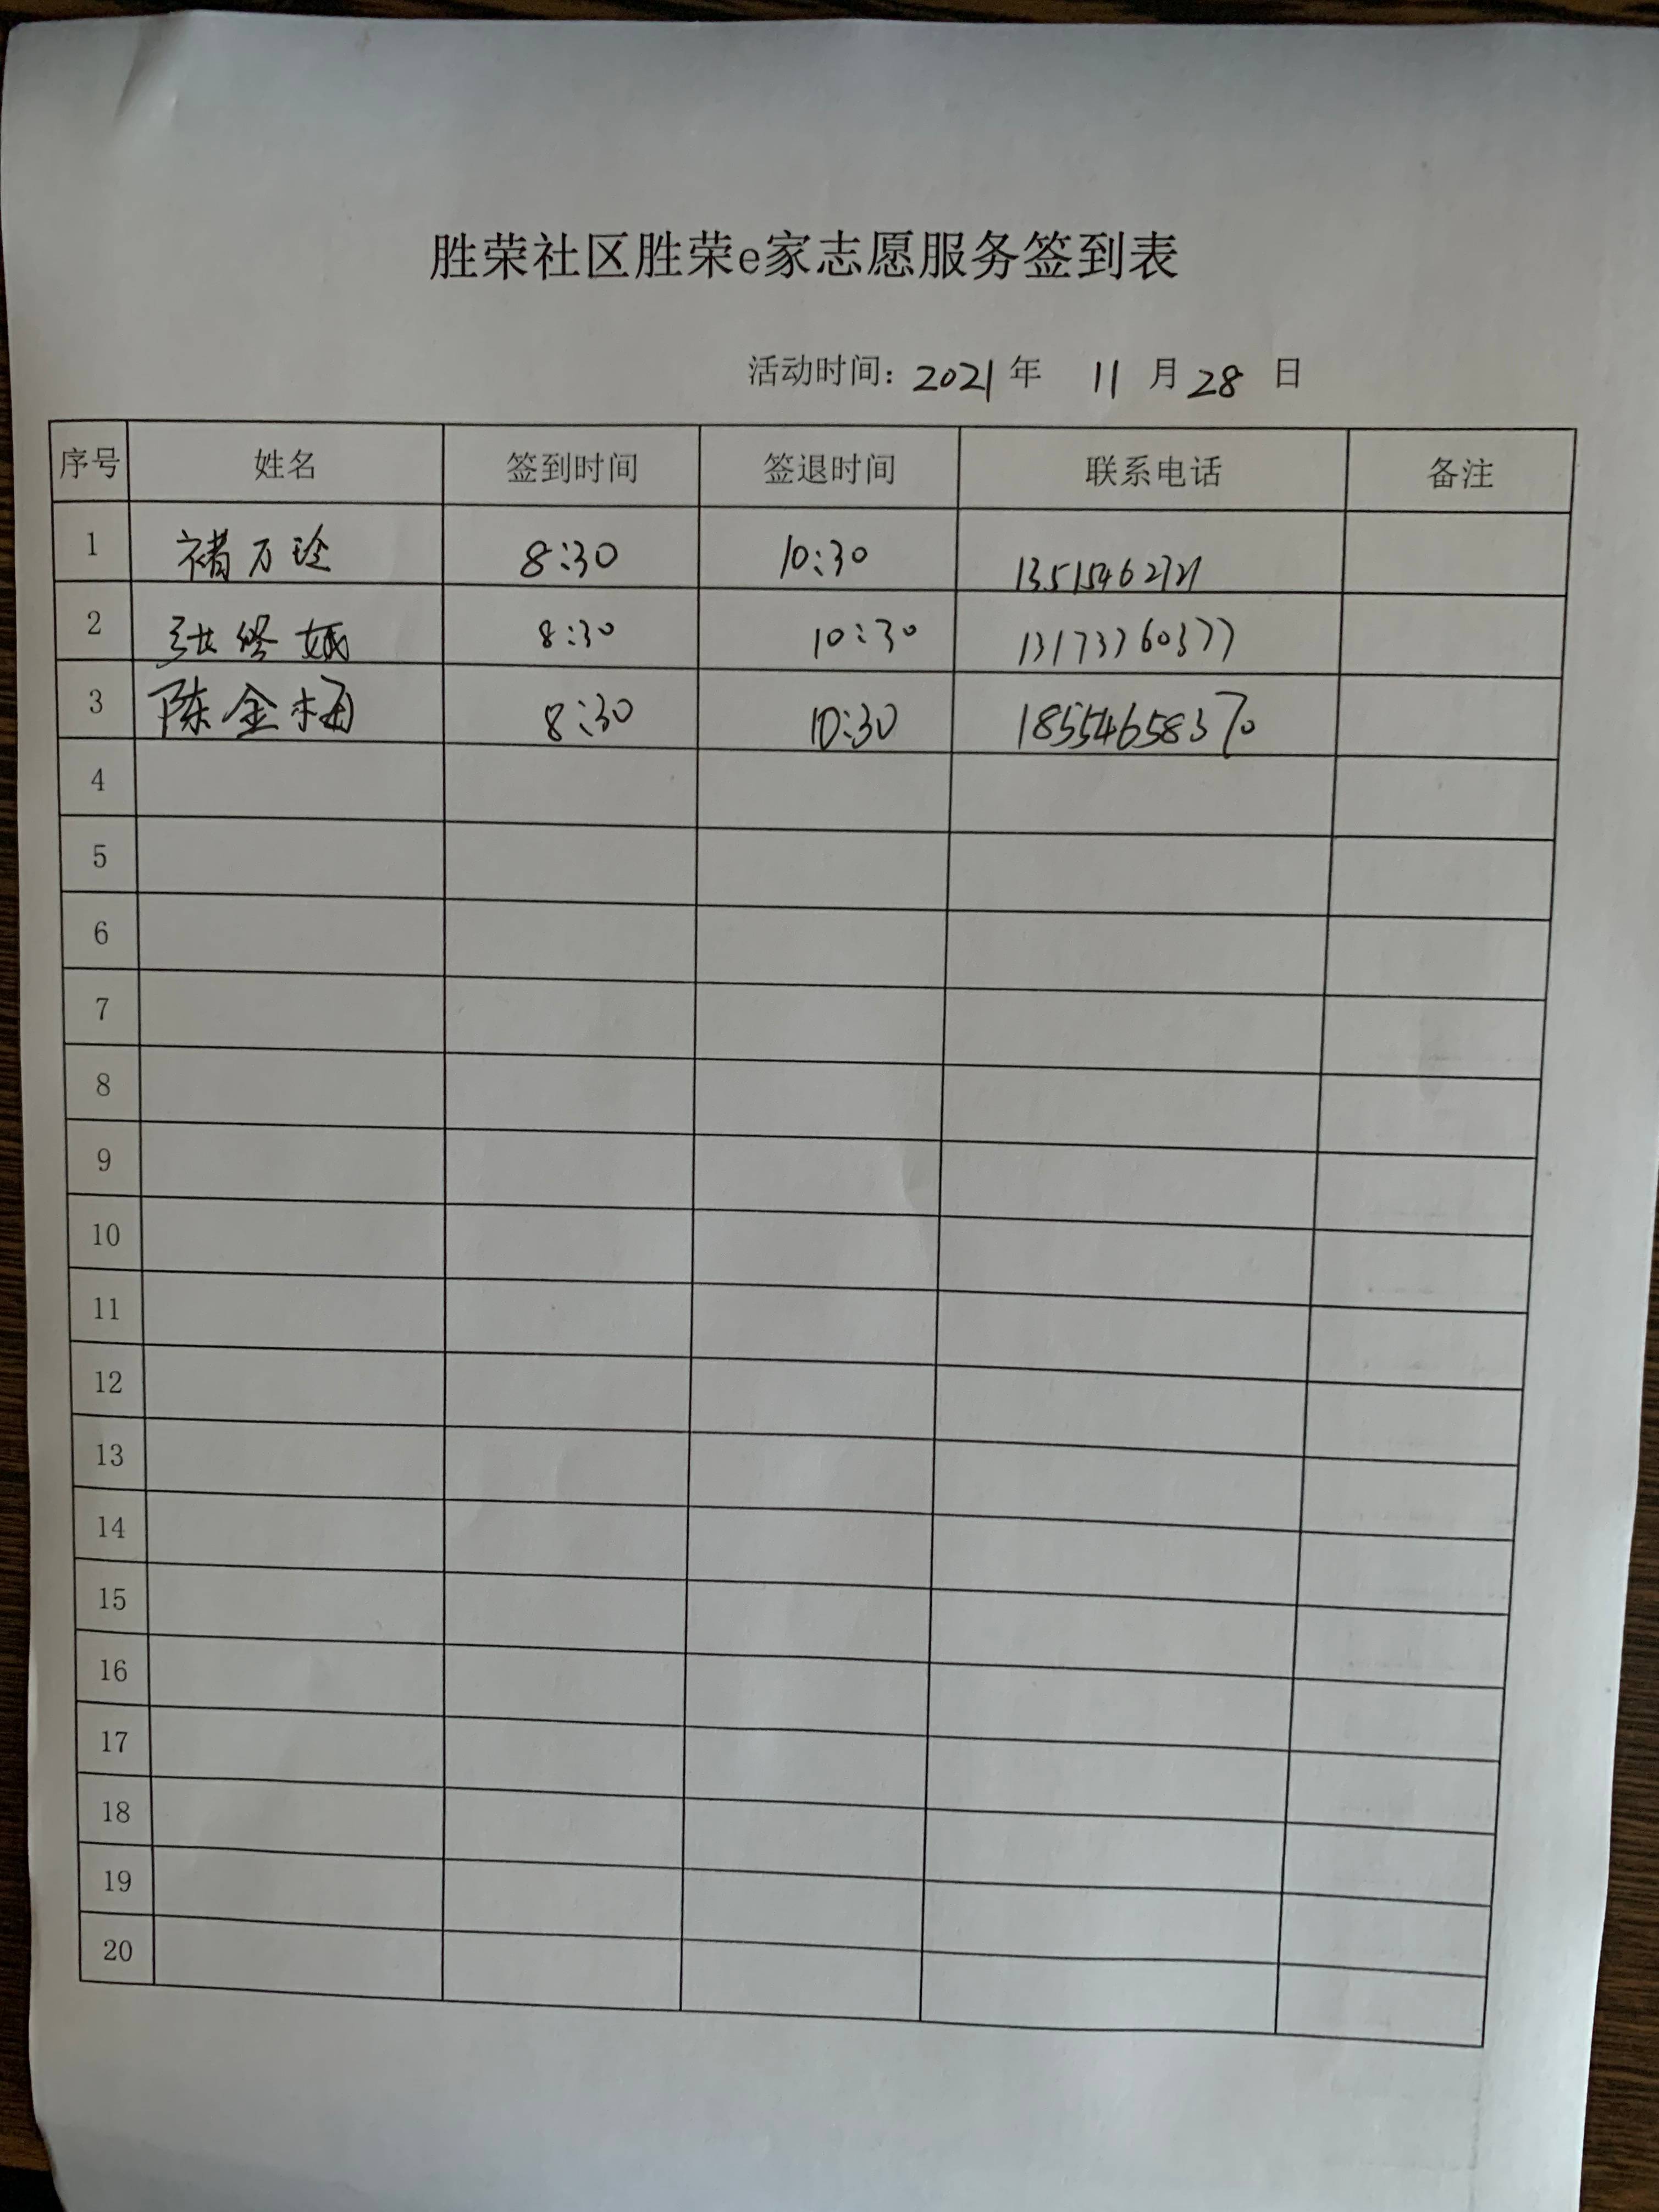 胜荣社区胜荣e家志愿服务签到表
活动时间：2021 年 11 月 28 日
序号 姓名 签到时间 签退时间 联系电话 备注
1 褚万玲 8:30 10:30
2 张 8:30 10:30 13173760377
3 陈金梅 8:30 10:30 18554658370
4
5
6
7
8
9
10
11
12
13
14
15
16
17
18
19
20